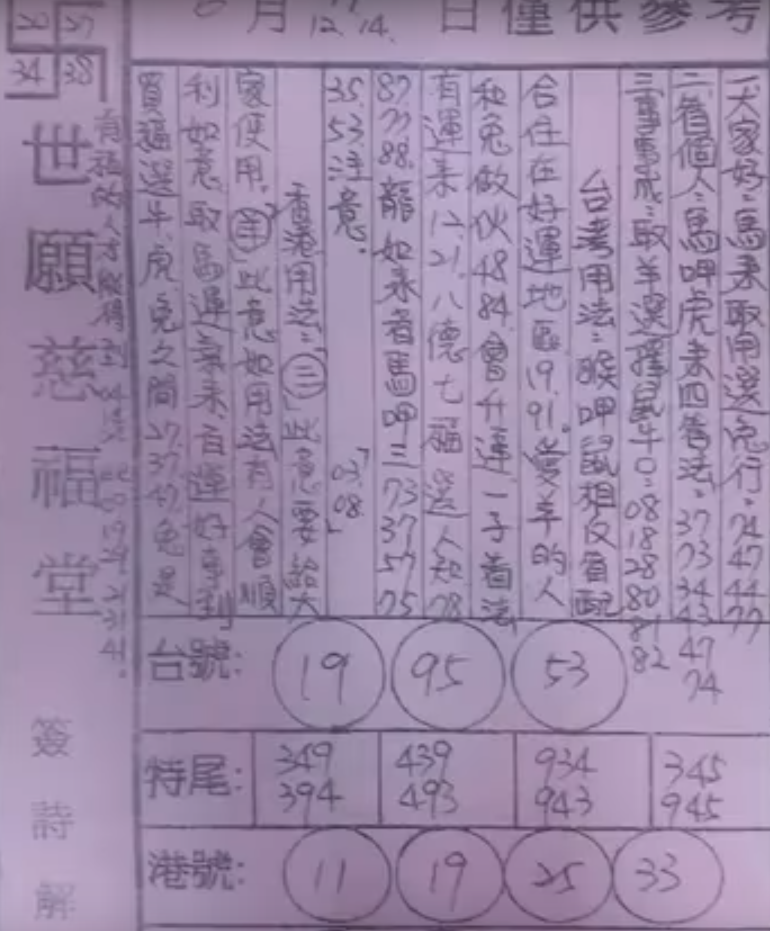 月 12. 14. 日僅供參考
一大家好:馬來取用選兔行。74 47 44 77
二看個人:馬呷虎來四看法。37 73 34 43 47 74
三事事成:取羊選擇鼠牛0:08 18 28 80 81 82
台灣用法:猴呷鼠相伩省配
合住在好運地區19.91。愛羊的人
和兔做伙48 84.會升運一子看法
有運來12.21.八德七福送人知78
87.77.88.龍如來者馬呷三73 37 57 75
35.53.注意. 03. 08.
香港用法:三此意要給大
家使用.此意如用法有人會順
利如意.取馬運氣來.百運好事到
買福選牛.虎兔之間27.37.47.兔是
26 27
34 38
世願慈福堂
簽詩解
台號: 19 95 53
特尾: 349 439 934 345
394 493 943 945
港號: 11 19 25 33